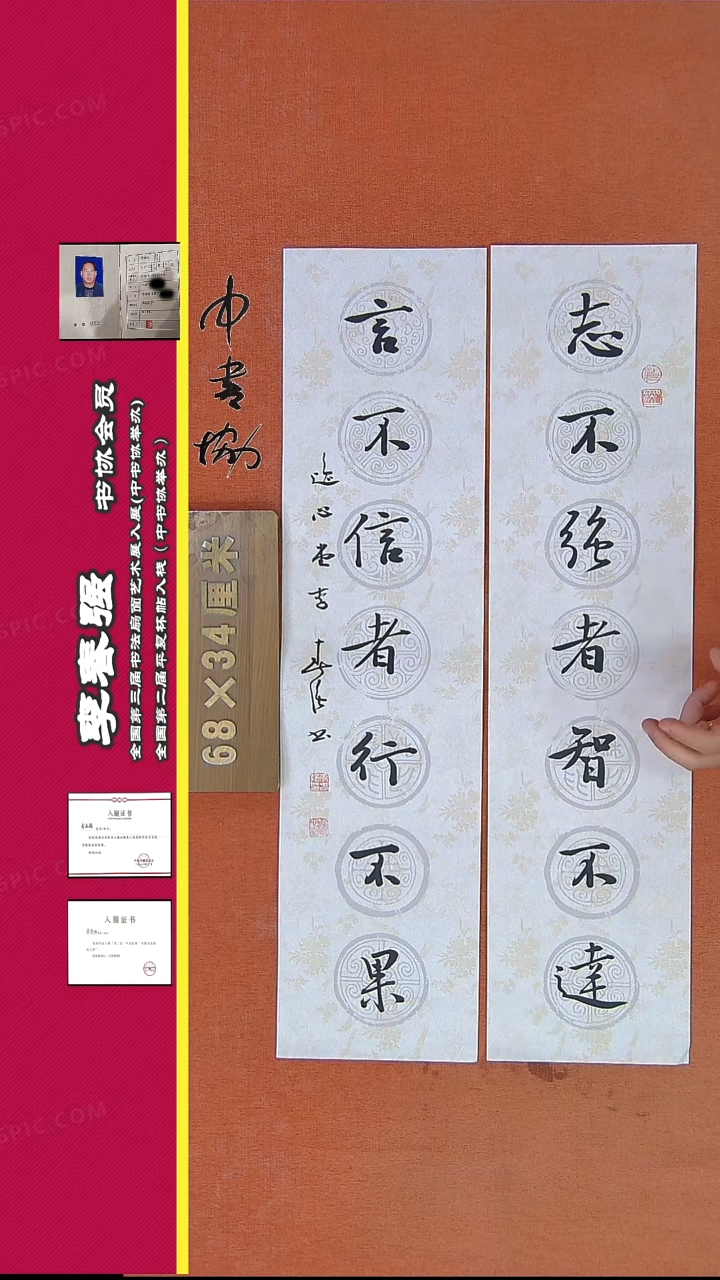 志不强智不達
言不信者行不果
逸心堂李春强书
中书协
68×34厘米
李春强 书协会员
全国第三届书法扇面艺术展入展(中书协举办)
全国第二届平复杯帖入栈(中书协举办)
入展证书
入展证书